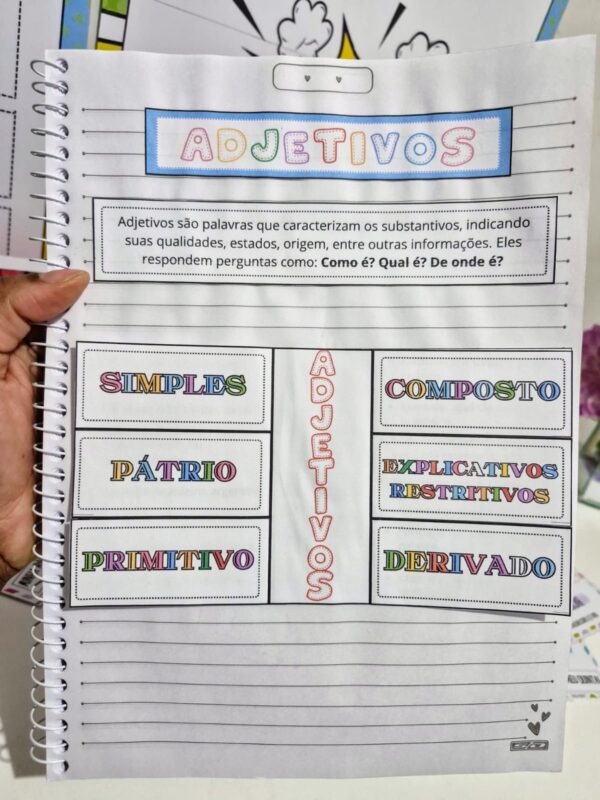 ADJETIVOS
Adjetivos são palavras que caracterizam os substantivos, indicando
suas qualidades, estados, origem, entre outras informações. Eles
respondem perguntas como: Como é? Qual é? De onde é?
SIMPLES
PÁTRIO
PRIMITIVO
ADJETIVOS
COMPOSTO
EXPLICATIVOS
RESTRITIVOS
DERIVADO